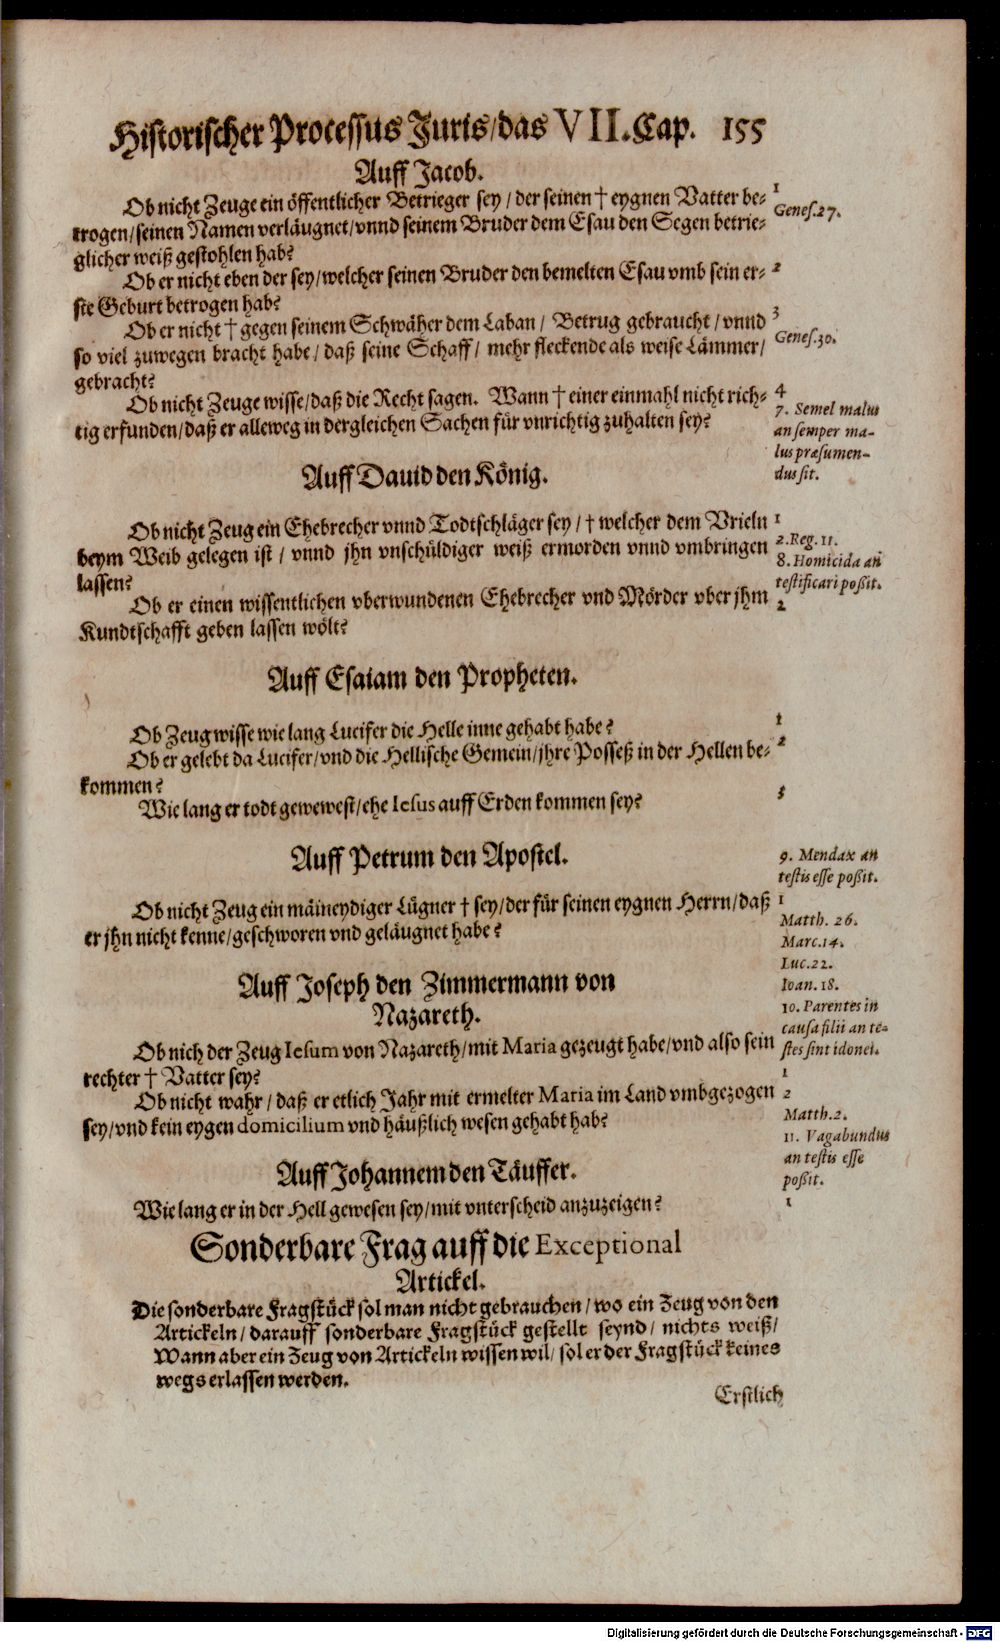 Historischer Processus Juris/das VII.Cap. 155
Auff Jacob.
Ob nicht Zeuge ein öffentlicher Betrieger sey / der seinen † eygnen Vatter be-
trogen/seinen Namen verläugnet/vnnd seinem Bruder dem Esau den Segen betrie-
glicher weiß gestohlen hab?
1
Genes.27.
Ob er nicht eben der sey/welcher seinen Bruder den bemelten Esau vmb sein er-
ste Geburt betrogen hab?
2
Ob er nicht † gegen seinem Schwäher dem Laban / Betrug gebraucht / vnnd
so viel zuwegen bracht habe / daß seine Schaff / mehr fleckende als weise Lämmer/
gebracht?
3
Genes.30.
Ob nicht Zeuge wisse/daß die Recht sagen. Wann † einer einmahl nicht rich-
tig erfunden/daß er alleweg in dergleichen Sachen für vnrichtig zuhalten sey?
4
7. Semel malus
an semper ma-
lus præsumen-
dus sit.
Auff Dauid den König.
Ob nicht Zeug ein Ehebrecher vnnd Todtschläger sey / † welcher dem Vrieln
beym Weib gelegen ist / vnnd jhn vnschüldiger weiß ermorden vnnd vmbringen
lassen?
1
2.Reg. 11.
8. Homicida an
testificari poßit.
Ob er einen wissentlichen vberwundenen Ehebrecher vnd Mörder vber jhm
Kundtschafft geben lassen wölt?
2
Auff Esaiam den Propheten.
Ob Zeug wisse wie lang Lucifer die Helle inne gehabt habe?
1
Ob er gelebt da Lucifer/vnd die Hellische Gemein/jhre Posseß in der Hellen be-
kommen?
2
Wie lang er todt gewewest/ehe Iesus auff Erden kommen sey?
3
Auff Petrum den Apostel.
9. Mendax an
testis esse poßit.
Ob nicht Zeug ein mäineydiger Lügner † sey/der für seinen eygnen Herrn/daß
er jhn nicht kenne/geschworen vnd geläugnet habe?
1
Matth. 26.
Marc.14.
Luc.22.
Ioan. 18.
Auff Joseph den Zimmermann von
Nazareth.
10. Parentes in
causa filii an te-
stes sint idonei.
Ob nich der Zeug Iesum von Nazareth/mit Maria gezeugt habe/vnd also sein
rechter † Vatter sey?
1
Ob nicht wahr / daß er etlich Jahr mit ermelter Maria im Land vmbgezogen
sey/vnd kein eygen domicilium vnd häußlich wesen gehabt hab?
2
Matth.2.
11. Vagabundus
an testis esse
poßit.
Auff Johannem den Täuffer.
Wie lang er in der Hell gewesen sey/mit vnterscheid anzuzeigen?
1
Sonderbare Frag auff die Exceptional
Artickel.
Die sonderbare Fragstück sol man nicht gebrauchen / wo ein Zeug von den
Artickeln / darauff sonderbare Fragstück gestellt seynd / nichts weiß/
Wann aber ein Zeug von Artickeln wissen wil/ sol er der Fragstück keines
wegs erlassen werden.
Erstlich
Digitalisierung gefördert durch die Deutsche Forschungsgemeinschaft - DFG